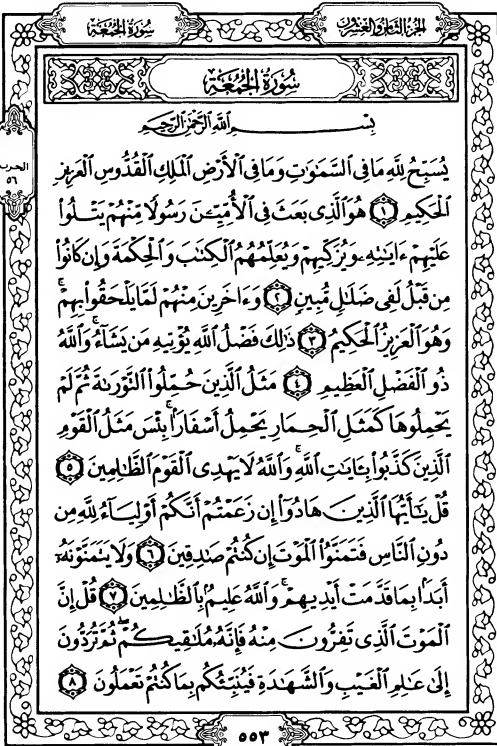 سُورَةُ الجُمُعَةِ
الجُزْءُ الثَّامِنُ وَالعِشْرُونَ
سُورَةُ الجُمُعَةِ
بِسْمِ اللَّهِ الرَّحْمَٰنِ الرَّحِيمِ
الحزب
٥٦
يُسَبِّحُ لِلَّهِ مَا فِى السَّمَٰوَٰتِ وَمَا فِى الْأَرْضِ الْمَلِكِ الْقُدُّوسِ الْعَزِيزِ
الْحَكِيمِ ١ هُوَ الَّذِى بَعَثَ فِى الْأُمِّيِّۦنَ رَسُولًا مِّنْهُمْ يَتْلُوا۟
عَلَيْهِمْ ءَايَٰتِهِۦ وَيُزَكِّيهِمْ وَيُعَلِّمُهُمُ الْكِتَٰبَ وَالْحِكْمَةَ وَإِن كَانُوا۟
مِن قَبْلُ لَفِى ضَلَٰلٍ مُّبِينٍ ٢ وَءَاخَرِينَ مِنْهُمْ لَمَّا يَلْحَقُوا۟ بِهِمْ ۚ
وَهُوَ الْعَزِيزُ الْحَكِيمُ ٣ ذَٰلِكَ فَضْلُ اللَّهِ يُؤْتِيهِ مَن يَشَآءُ ۚ وَاللَّهُ
ذُو الْفَضْلِ الْعَظِيمِ ٤ مَثَلُ الَّذِينَ حُمِّلُوا۟ التَّوْرَىٰةَ ثُمَّ لَمْ
يَحْمِلُوهَا كَمَثَلِ الْحِمَارِ يَحْمِلُ أَسْفَارًۢا ۚ بِئْسَ مَثَلُ الْقَوْمِ
الَّذِينَ كَذَّبُوا۟ بِـَٔايَٰتِ اللَّهِ ۚ وَاللَّهُ لَا يَهْدِى الْقَوْمَ الظَّٰلِمِينَ ٥
قُلْ يَٰٓأَيُّهَا الَّذِينَ هَادُوٓا۟ إِن زَعَمْتُمْ أَنَّكُمْ أَوْلِيَآءُ لِلَّهِ مِن
دُونِ النَّاسِ فَتَمَنَّوُا۟ الْمَوْتَ إِن كُنتُمْ صَٰدِقِينَ ٦ وَلَا يَتَمَنَّوْنَهُۥٓ
أَبَدًۢا بِمَا قَدَّمَتْ أَيْدِيهِمْ ۚ وَاللَّهُ عَلِيمٌۢ بِالظَّٰلِمِينَ ٧ قُلْ إِنَّ
الْمَوْتَ الَّذِى تَفِرُّونَ مِنْهُ فَإِنَّهُۥ مُلَٰقِيكُمْ ۖ ثُمَّ تُرَدُّونَ
إِلَىٰ عَٰلِمِ الْغَيْبِ وَالشَّهَٰدَةِ فَيُنَبِّئُكُم بِمَا كُنتُمْ تَعْمَلُونَ ٨
٥٥٣